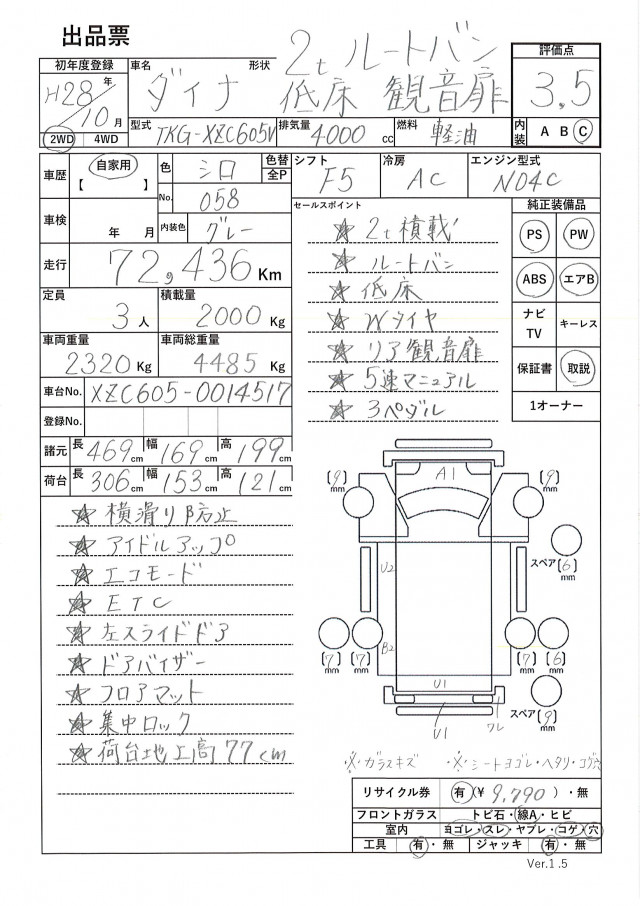 出品票
初年度登録
H28年/10月
車名 ダイナ
形状 2t ルートバン
低床 観音扉
評価点
3.5
2WD 4WD
型式 TKG-XZC605V
排気量 4000cc
燃料 軽油
内装 A B C
車歴 自家用
【 】
色 シロ
色替 全P
シフト F5
冷房 AC
エンジン型式 N04C
No. 058
車検 年 月
内装色 グレー
走行 72,436 Km
定員 3人
積載量 2000 Kg
車両重量 2320 Kg
車両総重量 4485 Kg
車台No. XZC605-0014517
登録No.
諸元 長 469cm 幅 169cm 高 199cm
荷台 長 306cm 幅 153cm 高 121cm
セールスポイント
★ 2t積載
★ ルートバン
★ 低床
★ Wタイヤ
★ リア観音扉
★ 5速マニュアル
★ 3ペダル
純正装備品
PS PW
ABS エアB
ナビTV キーレス
保証書 取説
1オーナー
★ 横滑り防止
★ アイドルアップ
★ エコモード
★ ETC
★ 左スライドドア
★ ドアバイザー
★ フロアマット
★ 集中ロック
★ 荷台地上高77cm
A1
〔9〕mm 〔9〕mm
スペア〔6〕mm
U2
B2
〔7〕mm 〔7〕mm 〔7〕mm 〔6〕mm
U1
U1
ワレ
スペア〔9〕mm
※ガラスキズ ※シートヨゴレ・ヘタリ・コゲ穴
リサイクル券 有(¥ 9,790 )・無
フロントガラス トビ石・線A・ヒビ
室内 ヨゴレ・スレ・ヤブレ・コゲ・穴
工具 有・無 ジャッキ 有・無
Ver.1.5